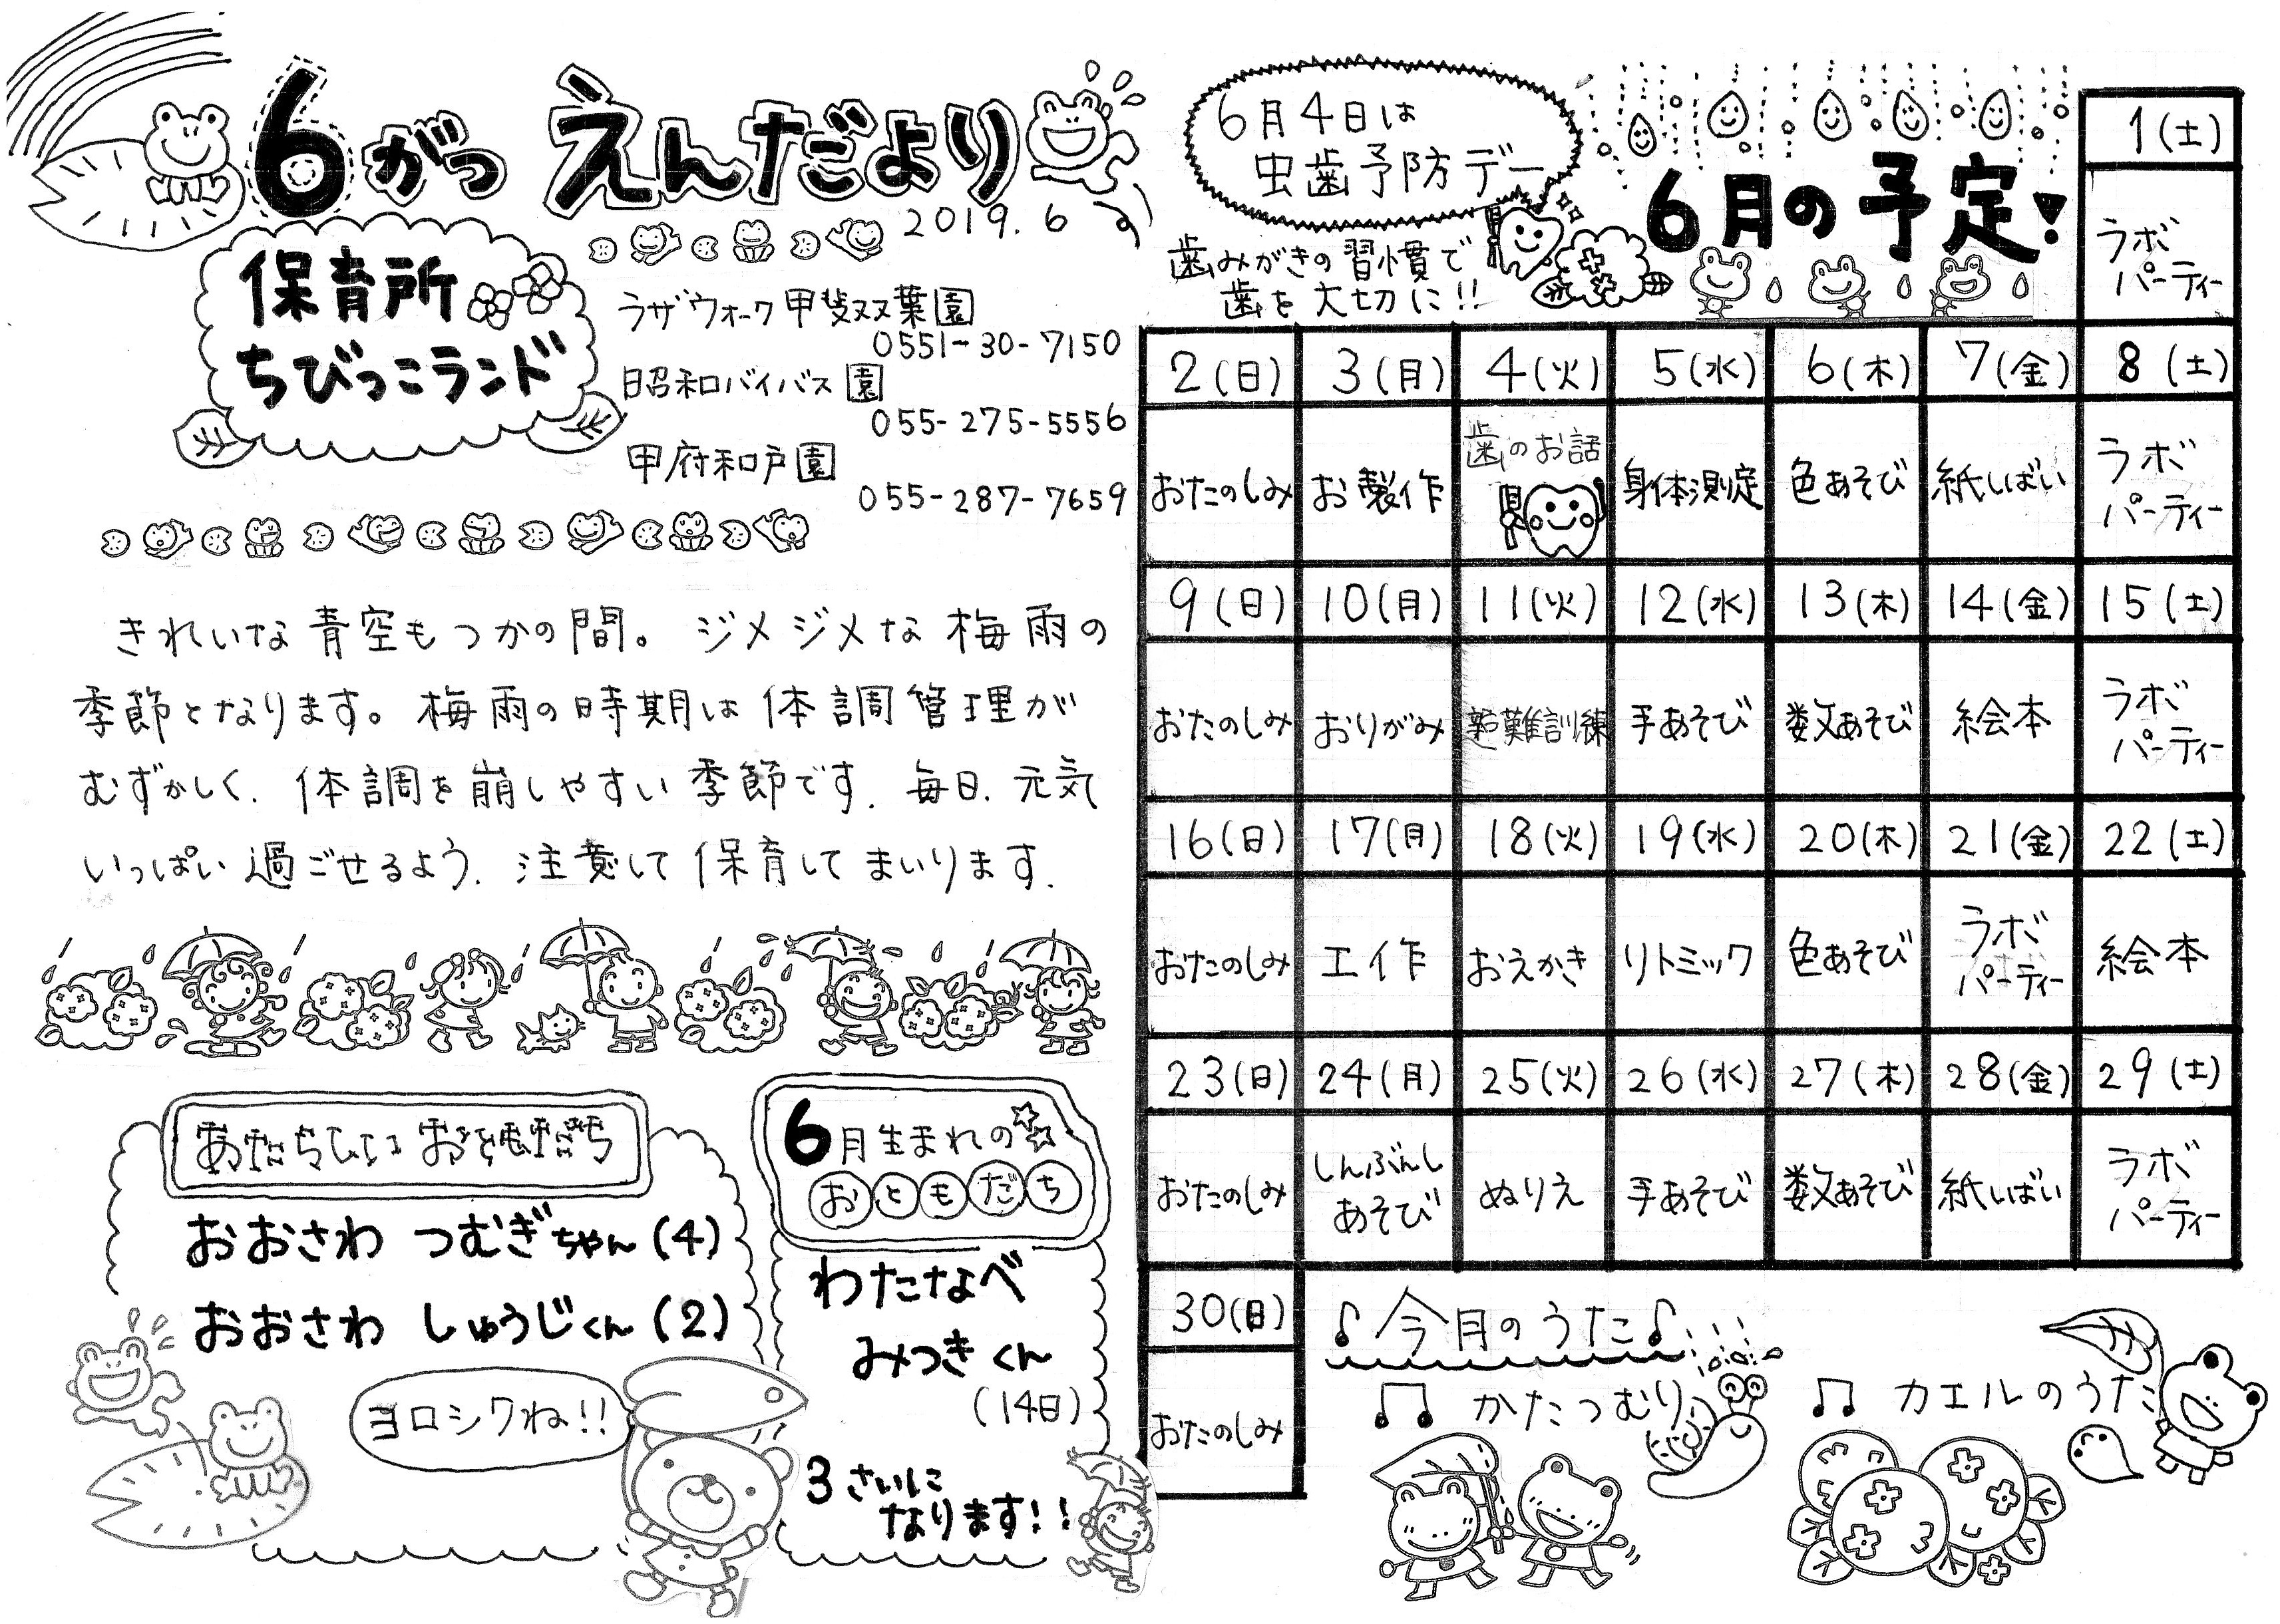 6がつ えんだより
2019.6
保育所
ちびっこランド
ラザウォーク甲斐双葉園
0551-30-7150
昭和バイパス園
055-275-5556
甲府和戸園
055-287-7659
きれいな青空もつかの間。ジメジメな梅雨の
季節となります。梅雨の時期は体調管理が
むずかしく、体調を崩しやすい季節です。毎日、元気
いっぱい過ごせるよう、注意して保育してまいります。
あたらしい おともだち
おおさわ つむぎちゃん(4)
おおさわ しゅうじくん(2)
ヨロシクね!!
6月生まれの
おともだち
わたなべ
みつきくん
(14日)
3さいに
なります!!
6月4日は
虫歯予防デー
歯みがきの習慣で
歯を大切に!!
6月の予定!
1(土)
ラボ
パーティー
2(日) 3(月) 4(火) 5(水) 6(木) 7(金) 8(土)
おたのしみ お製作 歯のお話 身体測定 色あそび 紙しばい ラボ
パーティー
9(日) 10(月) 11(火) 12(水) 13(木) 14(金) 15(土)
おたのしみ おりがみ 避難訓練 手あそび 数あそび 絵本 ラボ
パーティー
16(日) 17(月) 18(火) 19(水) 20(木) 21(金) 22(土)
おたのしみ 工作 おえかき リトミック 色あそび ラボ
パーティー 絵本
23(日) 24(月) 25(火) 26(水) 27(木) 28(金) 29(土)
おたのしみ しんぶんし
あそび ぬりえ 手あそび 数あそび 紙しばい ラボ
パーティー
30(日)
おたのしみ
♪今月のうた♪
♫ かたつむり
♫ カエルのうた